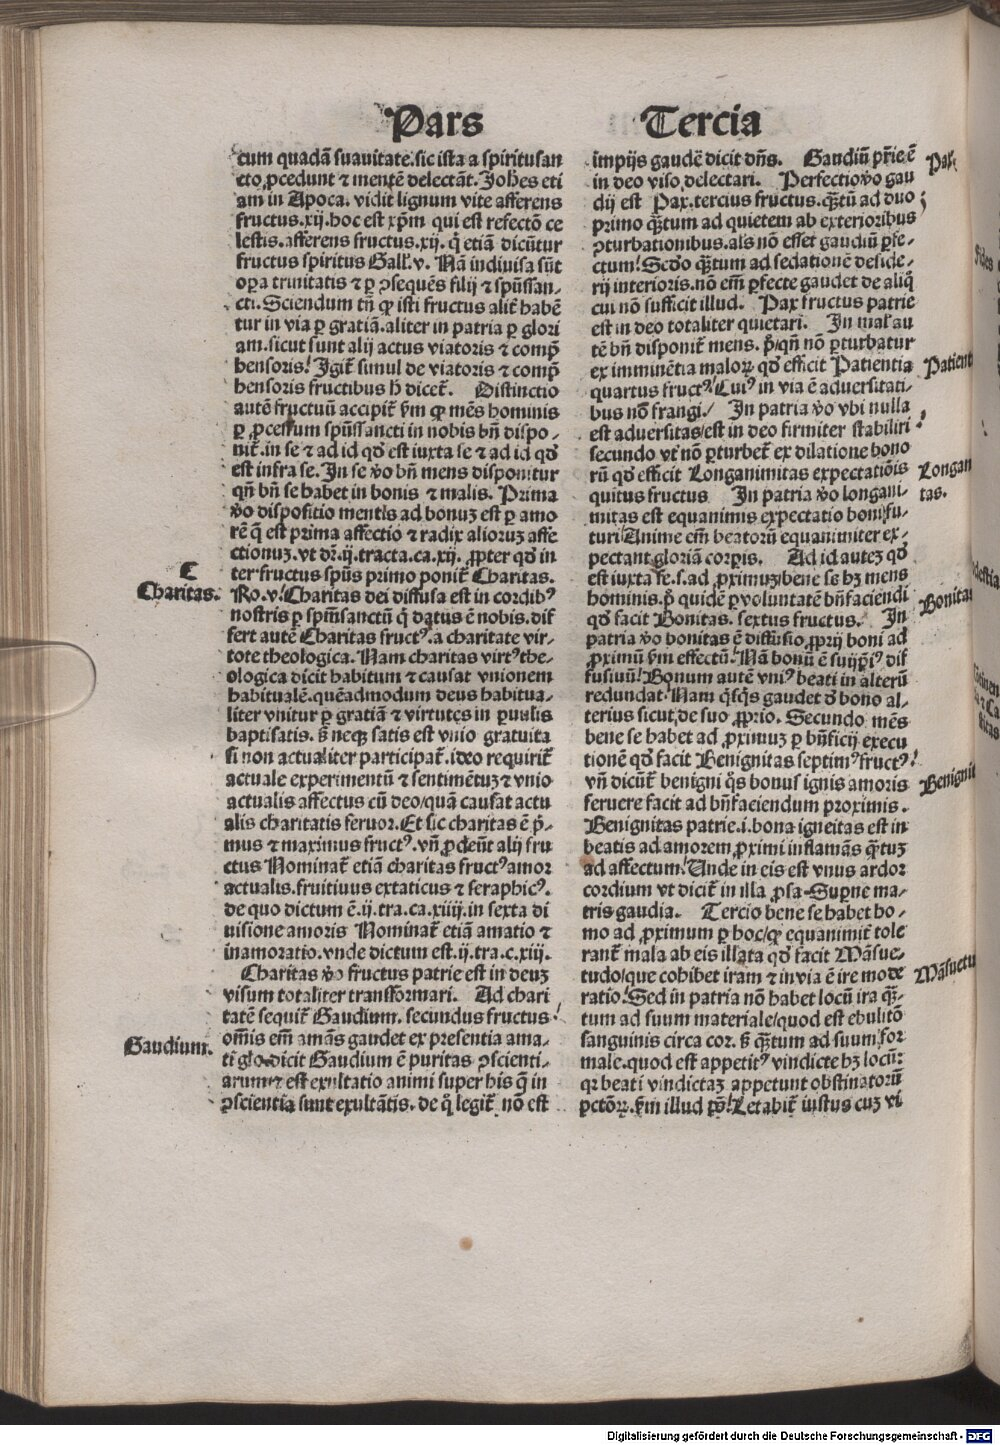 Pars Tercia
cum quadã suauitate. sic ista a spiritusan
cto ꝓcedunt ⁊ mentẽ delectãt. Joh̃es eti
am in Apoca. vidit lignum vite afferens
fructus. xij. hoc est xp̃m qui est refectõ ce
lestis. afferens fructus. xij. q̃ etiã dicũtur
fructus spiritus Gall̃. v. Nã indiuisa sũt
oꝑa trinitatis ⁊ ꝑ ꝯsequẽs filij ⁊ sp̃ussan⸗
cti. Sciendum tñ ꝙ isti fructus alit̃ habẽ
tur in via ꝑ gratiã. aliter in patria ꝑ glori
am. sicut sunt alij actus viatoris ⁊ comp̃
hensoris. Igit̃ simul de viatoris ⁊ comp̃
hensoris fructibus h̃ dicet̃. Distinctio
autẽ fructuũ accipit̃ ẜm ꝙ mẽs hominis
ꝑ ꝓcessum sp̃ussancti in nobis bñ dispo⸗
nit̃. in se ⁊ ad id qd̃ est iuxta se ⁊ ad id qd̃
est infra se. In se ṽo bñ mens disponitur
qñ bñ se habet in bonis ⁊ malis. Prima
ṽo dispositio mentis ad bonuꝫ est ꝑ amo
rẽ q̃ est prima affectio ⁊ radix aliorum affe
ctionuꝫ. vt dr̃. ij. tracta. ca. xij. ꝓpter qd̃ in
C
ter fructus sp̃us primo ponit̃ Charitas.
Charitas.
Ro. v. Charitas dei diffusa est in cordibꝰ
nostris ꝑ sp̃msanctũ q̃ datus ẽ nobis. dif
fert autẽ Charitas fructꝰ. a charitate vir⸗
tute theologica. Nam charitas virtꝰ the⸗
ologica dicit habitum ⁊ causat vnionem
habitualẽ. quẽadmodum deus habitua⸗
liter vnitur ꝑ gratiã ⁊ virtutes in ꝑuulis
baptisatis. ß neqꝫ satis est vnio gratuita
si non actualiter participat̃. ideo requirit̃
actuale experimentũ ⁊ sentimẽtuꝫ ⁊ vnio
actualis affectus cũ deo/ quã causat actu
alis charitatis feruor. Et sic charitas ẽ p̃⸗
mus ⁊ maximus fructꝰ. vñ ꝓdeũt alij fru
ctus Nominat̃ etiã charitas fructꝰ amor
actualis. fruitiuus extaticus ⁊ seraphicꝰ.
de quo dictum ẽ. ij. tra. ca. xiiij. in sexta di
uisione amoris Nominat̃ etiã amatio ⁊
inamoratio. vnde dictum est. ij. tra. c. xiii.
Charitas ṽo fructus patrie est in deuꝫ
visum totaliter transformari. Ad chari
tatẽ sequit̃ Gaudium. secundus fructus
Gaudium.
om̃is em̃ amãs gaudet ex presentia ama⸗
ti. glo. dicit Gaudium ẽ puritas ꝯscienti⸗
arum ⁊ est exultatio animi super his q̃ in
ꝯscientia sunt exultãtis. de q̃ legit̃ nõ est
impijs gaudẽ dicit dñs. Gaudiũ pr̃ie ẽ
Pax.
in deo viso delectari. Perfectio ṽo gau
dij est Pax. tercius fructus. q̃tũ ad duo
primo q̃tum ad quietem ab exterioribus
ꝯturbationibus. als nõ esset gaudiũ ꝑfe⸗
ctum. Scd̃o q̃tum ad sedationẽ deside⸗
rij interioris. nõ em̃ ꝑfecte gaudet de aliq̃
cui nõ sufficit illud. Pax fructus patrie
est in deo totaliter quietari. In mal̃ au
tẽ bñ disponit̃ mens. p̃. qñ nõ ꝑturbatur
ex imminẽtia malorꝝ qd̃ efficit Patientia
Patient
quartus fructꝰ. Cuiꝰ in via ẽ aduersitati⸗
bus nõ frangi. In patria ṽo vbi nulla
est aduersitas/ est in deo firmiter stabiliri
secundo vt nõ ꝑturbet̃ ex dilatione bono
rũ qd̃ efficit Longanimitas expectatiõis
Longan
quitus fructus In patria ṽo longani⸗
tas.
mitas est equanimis expectatio boni fu⸗
turi. Anime em̃ beatorũ equanimiter ex⸗
pectant gloriã corꝑis. Ad id auteꝫ qd̃
est iuxta se. s. ad ꝓximuꝫ bene se hꝫ mens
hominis. p̃. quidẽ ꝑ voluntatẽ bñfaciendi
Bonitas
qd̃ facit Bonitas. sextus fructus. In
patria ṽo bonitas ẽ diffusio ꝓprij boni ad
ꝓximũ ẜm effectũ. Nã bonũ ẽ suijp̃iꝰ dif
fusiuũ. Bonum autẽ vniꝰ beati in alterũ
redundat. Nam q̃sq̃s gaudet d̃ bono al⸗
terius sicut de suo ꝓprio. Secundo mẽs
bene se habet ad ꝓximuꝫ ꝑ bñficij execu
tionẽ qd̃ facit Benignitas septimꝰ fructꝰ
vñ dicũt̃ benigni q̃s bonus ignis amoris
Benignit
feruere facit ad bñfaciendum proximis.
Benignitas patrie. i. bona igneitas est in
beatis ad amorem ꝓximi inflamãs q̃tuꝫ
ad affectum. Unde in eis est vnus ardor
cordium vt dicit̃ in illa ꝓsa. Suꝑne ma⸗
tris gaudia. Tercio bene se habet ho⸗
mo ad ꝓximum ꝑ hoc/ ꝙ equanimit̃ tole
rant̃ mala ab eis illata qd̃ facit Mãsue⸗
tudo/ que cohibet iram ⁊ in via ẽ ire mode
Mãsuetu
ratio. Sed in patria nõ habet locũ ira q̃⸗
tum ad suum materiale/ quod est ebulitõ
sanguinis circa cor. ß q̃tum ad suum for
male. quod est appetitꝰ vindicte hꝫ locũ:
qꝛ beati vindictaꝫ appetunt obstinatorũ
pctõꝝ. ẜm illud ps̃. Letabit̃ iustus cuꝫ vi
Digitalisierung gefördert durch die Deutsche Forschungsgemeinschaft - DFG